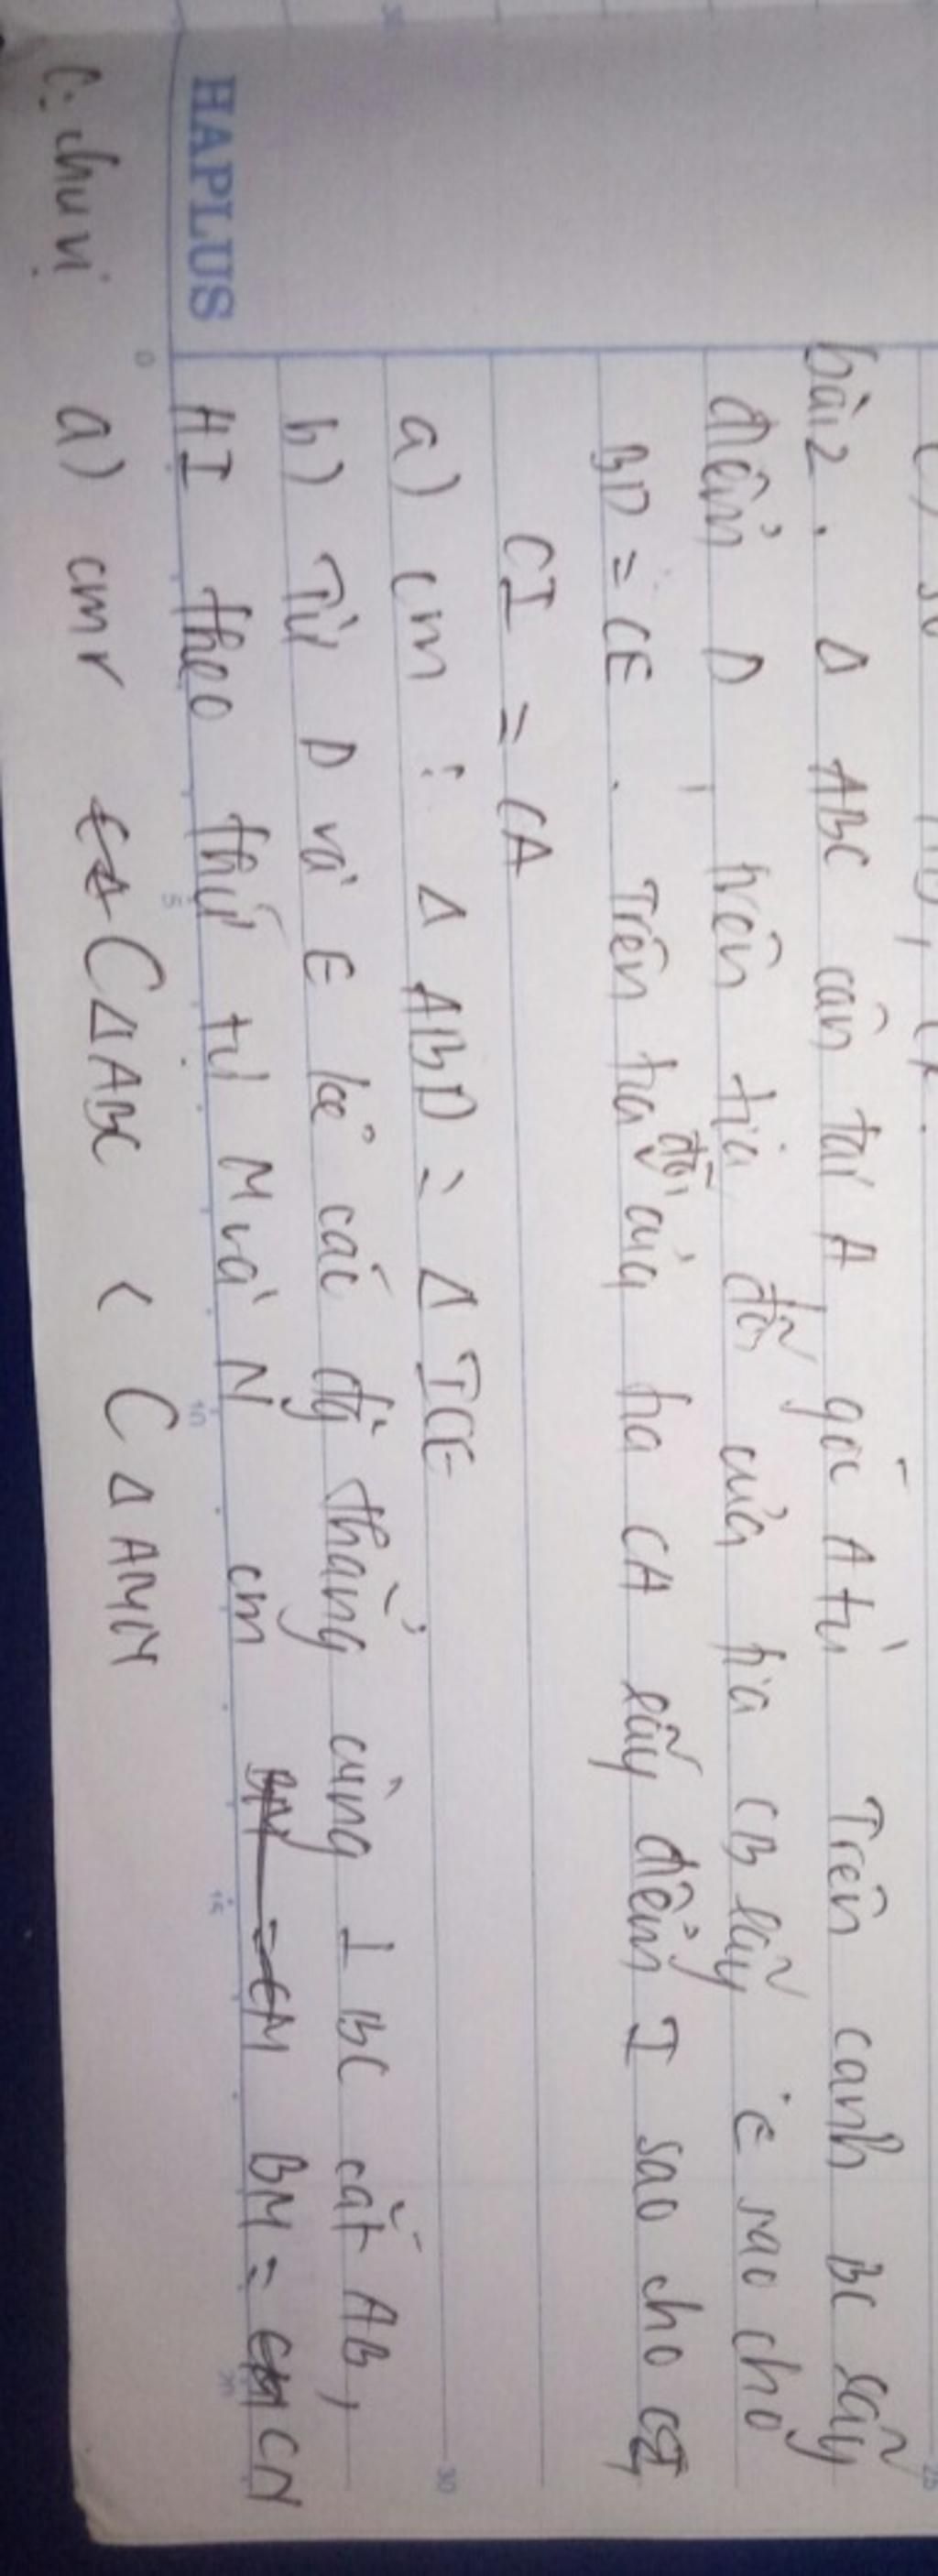 bài 2. Δ ABC cân tại A góc A tù Trên cạnh BC lấy
điểm D, trên tia đối của tia CB lấy E sao cho
BD = CE. Trên tia đối của tia CA lấy điểm I sao cho
CI = CA
a) cm : Δ ABD = Δ ICE
b) Từ D và E kẻ các đg thẳng cùng ⊥ BC cắt AB,
AI theo thứ tự M và N cm BM = CN
HAPLUS
C: chu vi a) cmr C Δ ABC < C Δ AMN
0 5 10 15 20
25
30